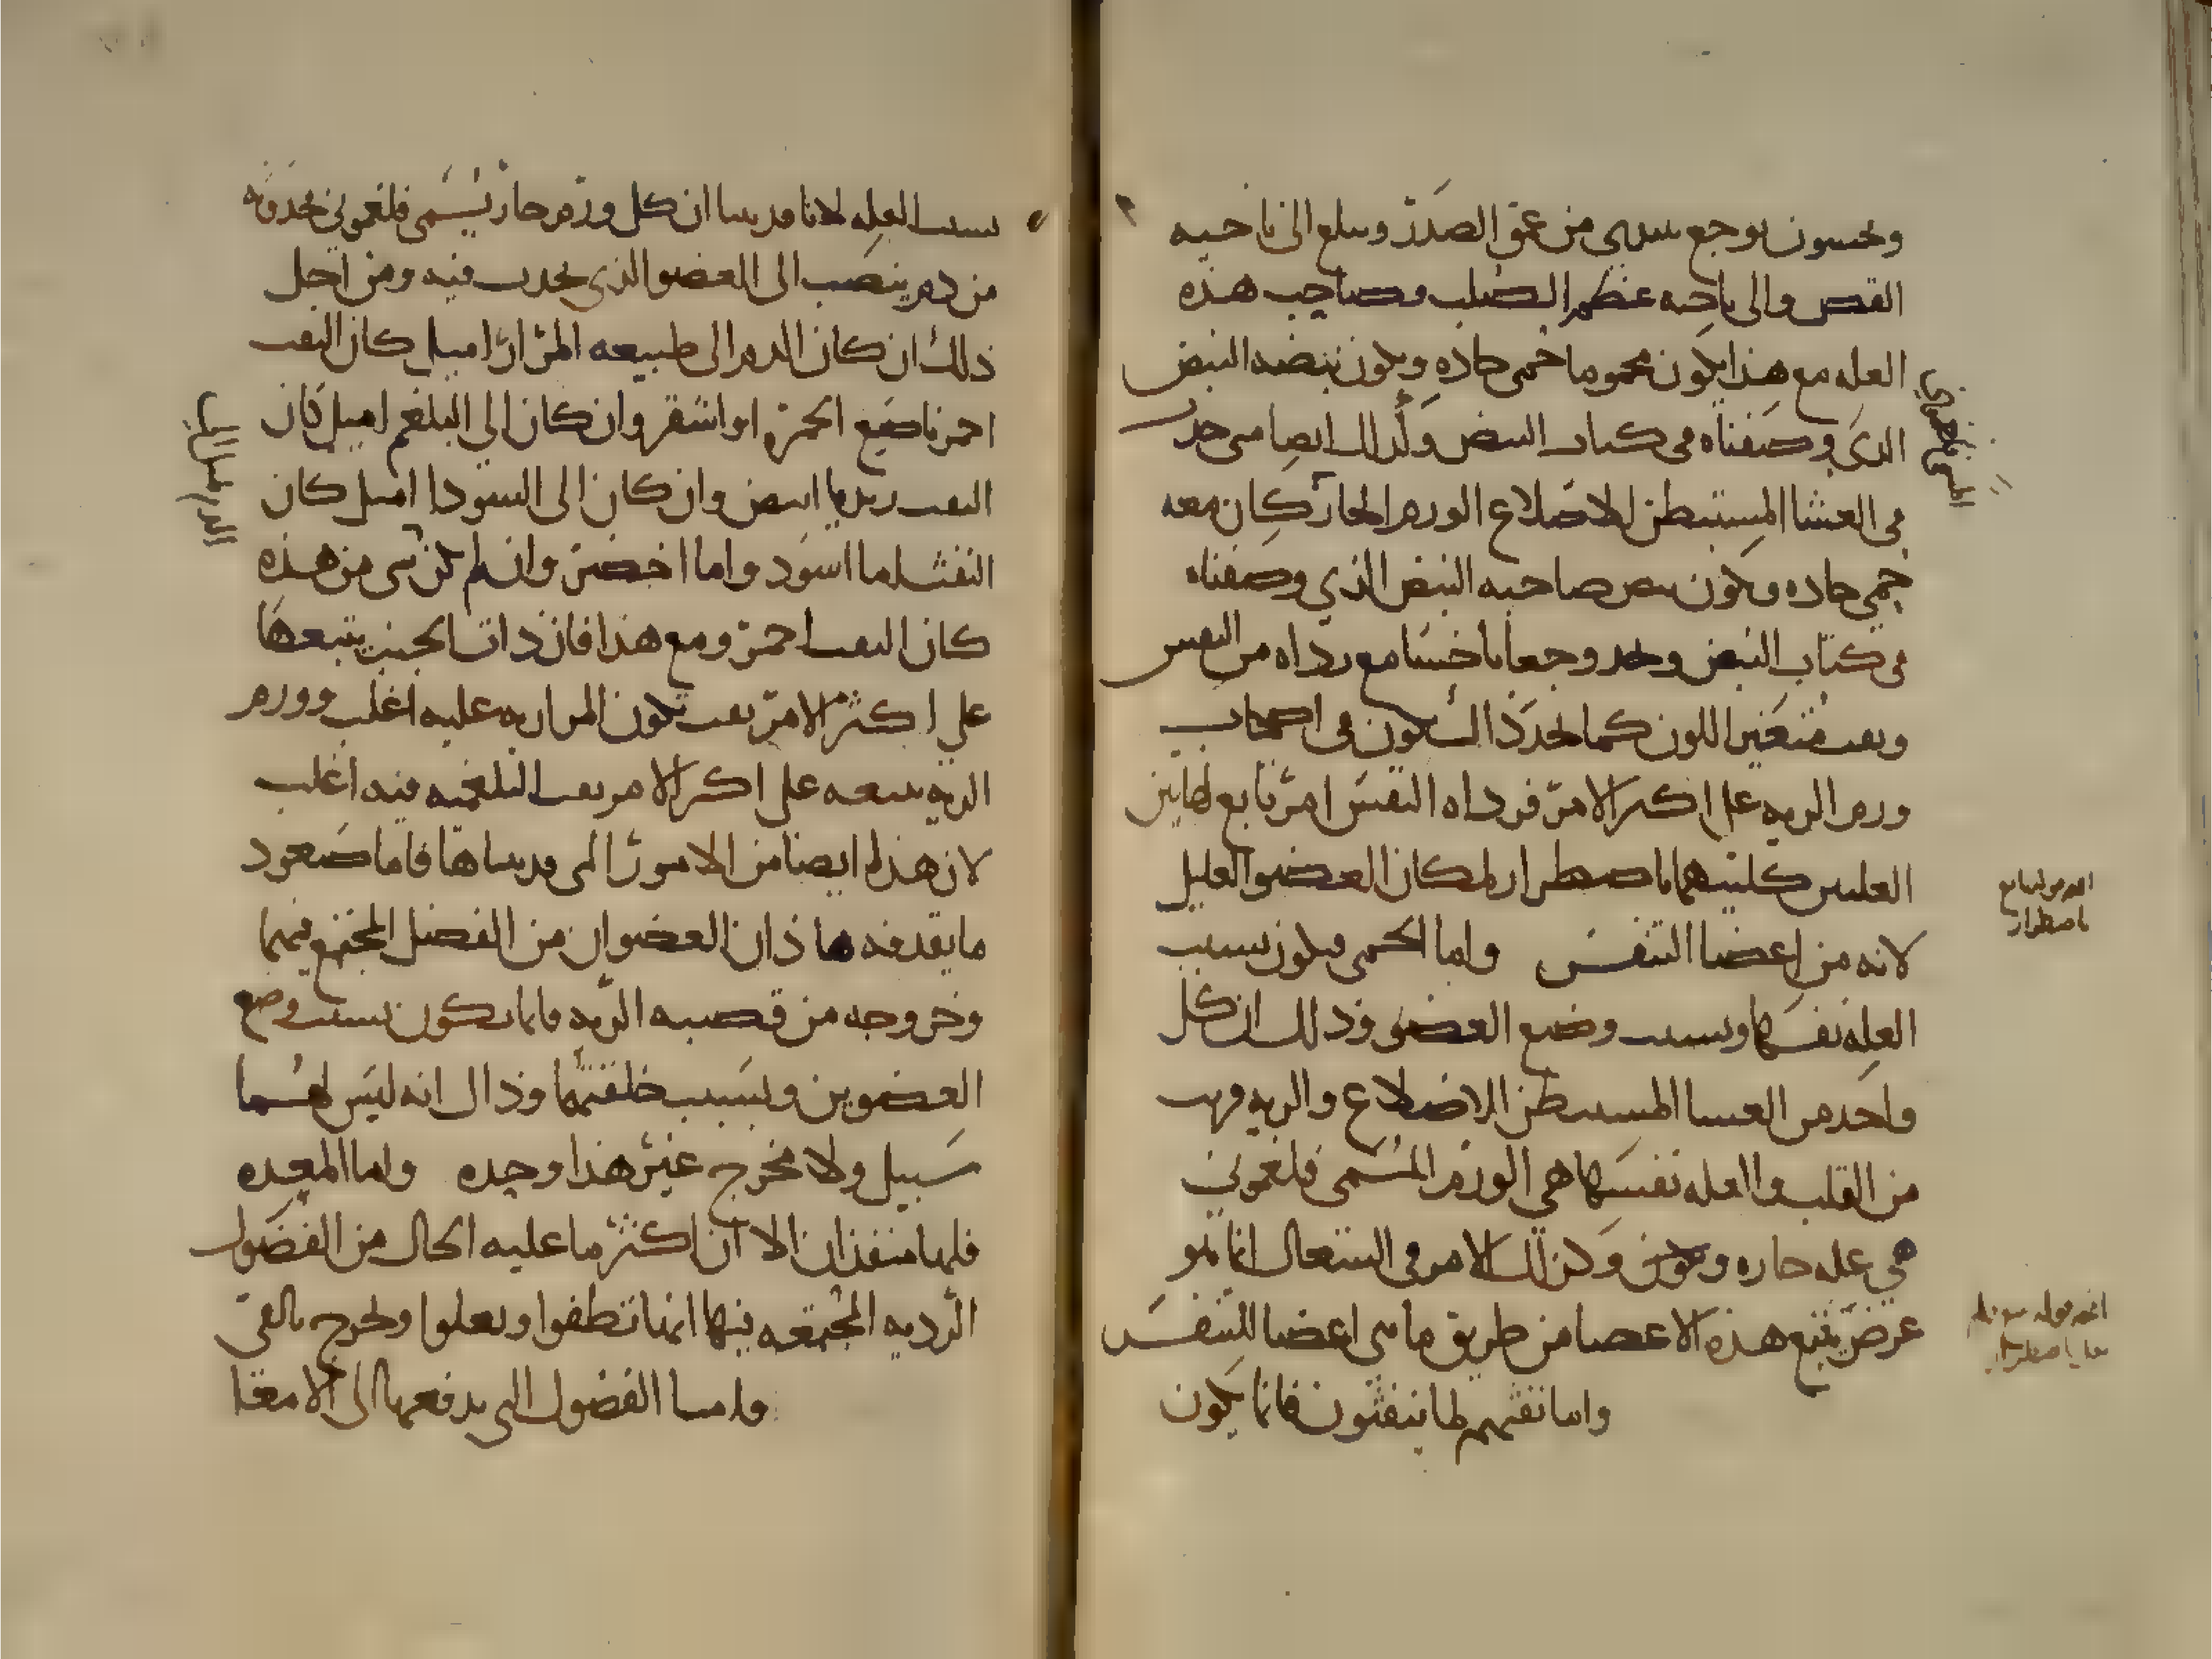 ويحسون بوجع يبتدي من عمق الصدر ويبلغ الى ناحيه
القص والى ناحيه عظم الصلب وصاحب هذه
العله مع هذا يكون محموما حمى حاده ويكون نبضه النبض
الذي وصفناه في كتاب النبض وكذلك ايضا متى حدث
في الغشا المستبطن للاضلاع الورم الحار كان معه
حمى حاده ويكون نبض صاحبه النبض الذي وصفناه
في كتاب النبض ويجد وجعا ناخسا مع رداه من النفس
ونفث متغير اللون كما يحدد ذلك يكون في اصحاب
ورم الريه على اكثر الامر فرداه النفس امر تابع لهاتين
العلتين كلتيهما باضطرار لمكان العضو العليل
لانه من اعضا التنفس واما الحمى فيكون بسبب
العله نفسها وبسبب وضع العضو وذلك ان كل
واحد من الغشا المستبطن للاضلاع والريه قريب
من القلب والعله نفسها هي الورم المسمى فلغموني
هي عله حاره وكذلك الامر في السعال انما هو
عرض يتبع هذه الاعضا من طريق ما هي اعضا للتنفس
واما نفثهم لما ينفثون فانما يكون
بسبب العله لانا قد بينا ان كل ورم حار يسمى فلغموني حدوثه
من دم ينصب الى العضو الذي يحدث فيه ومن اجل
ذلك ان كان الدم الى طبيعه المرار اميل كان النفث
احمر ناصع الحمره او اشقر وان كان الى البلغم اميل كان
النفث زبديا ابيض وان كان الى السودا اميل كان
النفث اما اسود واما اخضر وان لم يكن شي من هذه
كان النفث احمر ومع هذا فان ذات الجنب يتبعها
على اكثر الامر نفث تكون المراريه عليه اغلب وورم
الريه يتبعه على اكثر الامر نفث البلغميه فيه اغلب
لان هذا ايضا من الامور التي قد بيناها فاما صعود
ما يقذفه هاذان العضوان من الفضل المجتمع فيهما
وخروجه من قصبه الريه فانما يكون بسبب وضع
العضوين وبسبب خلقتهما وذاك انه ليس لهما
سبيل ولا مخرج غير هذا وحده واما المعده
فلها منفذان الا ان اكثر ما عليه الحال من الفضول
الرديه المجتمعه فيها انما تطفوا وتعلوا وتخرج بالقي
واما الفضول التي يدفعها الى الامعا